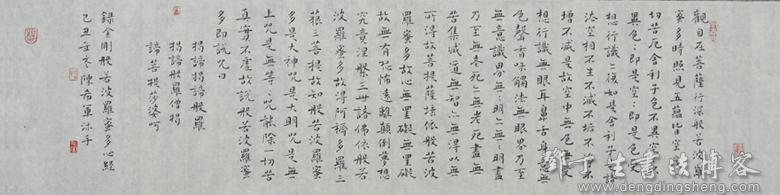 觀自在菩薩行深般若波羅
蜜多時照見五蘊皆空度一
切苦厄舍利子色不異空々不
異色々即是空々即是色受
想行識亦復如是舍利子是諸
法空相不生不滅不垢不淨不
增不減是故空中無色無受
想行識無眼耳鼻舌身意無
色聲香味觸法無眼界乃至
無意識界無々明亦無々明盡
乃至無老死亦無老死盡無
苦集滅道無智亦無得以無
所得故菩提薩埵依般若波
羅蜜多故心無罣礙無罣礙
故無有恐怖遠離顛倒夢想
究竟涅槃三世諸佛依般若
波羅蜜多故得阿耨多羅三
藐三菩提故知般若波羅蜜
多是大神咒是大明咒是無
上咒是無等々咒能除一切苦
真實不虛故說般若波羅蜜
多即說咒曰
揭諦揭諦般羅
揭諦般羅僧揭
諦菩提莎婆呵
錄金剛般若波羅蜜多心經
己丑年冬陳希軍沐手
鄧丁生書法博客
www.dengdingsheng.com